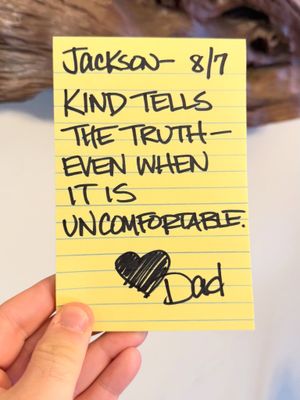 Jackson- 8/7
KIND TELLS
THE TRUTH-
EVEN WHEN
IT IS
UNCOMFORTABLE.
Dad